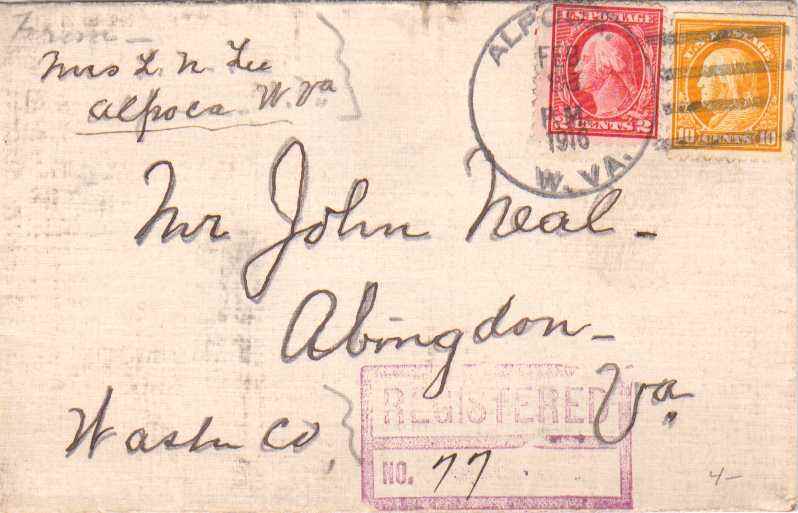 From —
Mrs L. N. Lee
Alpoca W. Va
ALPOCA
FEB
P.M.
1916
W. VA.
U.S. POSTAGE
2 CENTS 2
U.S. POSTAGE
10 CENTS 10
Mr John Neal —
Abingdon —
Va.
Washn Co,
REGISTERED
NO. 77
4-